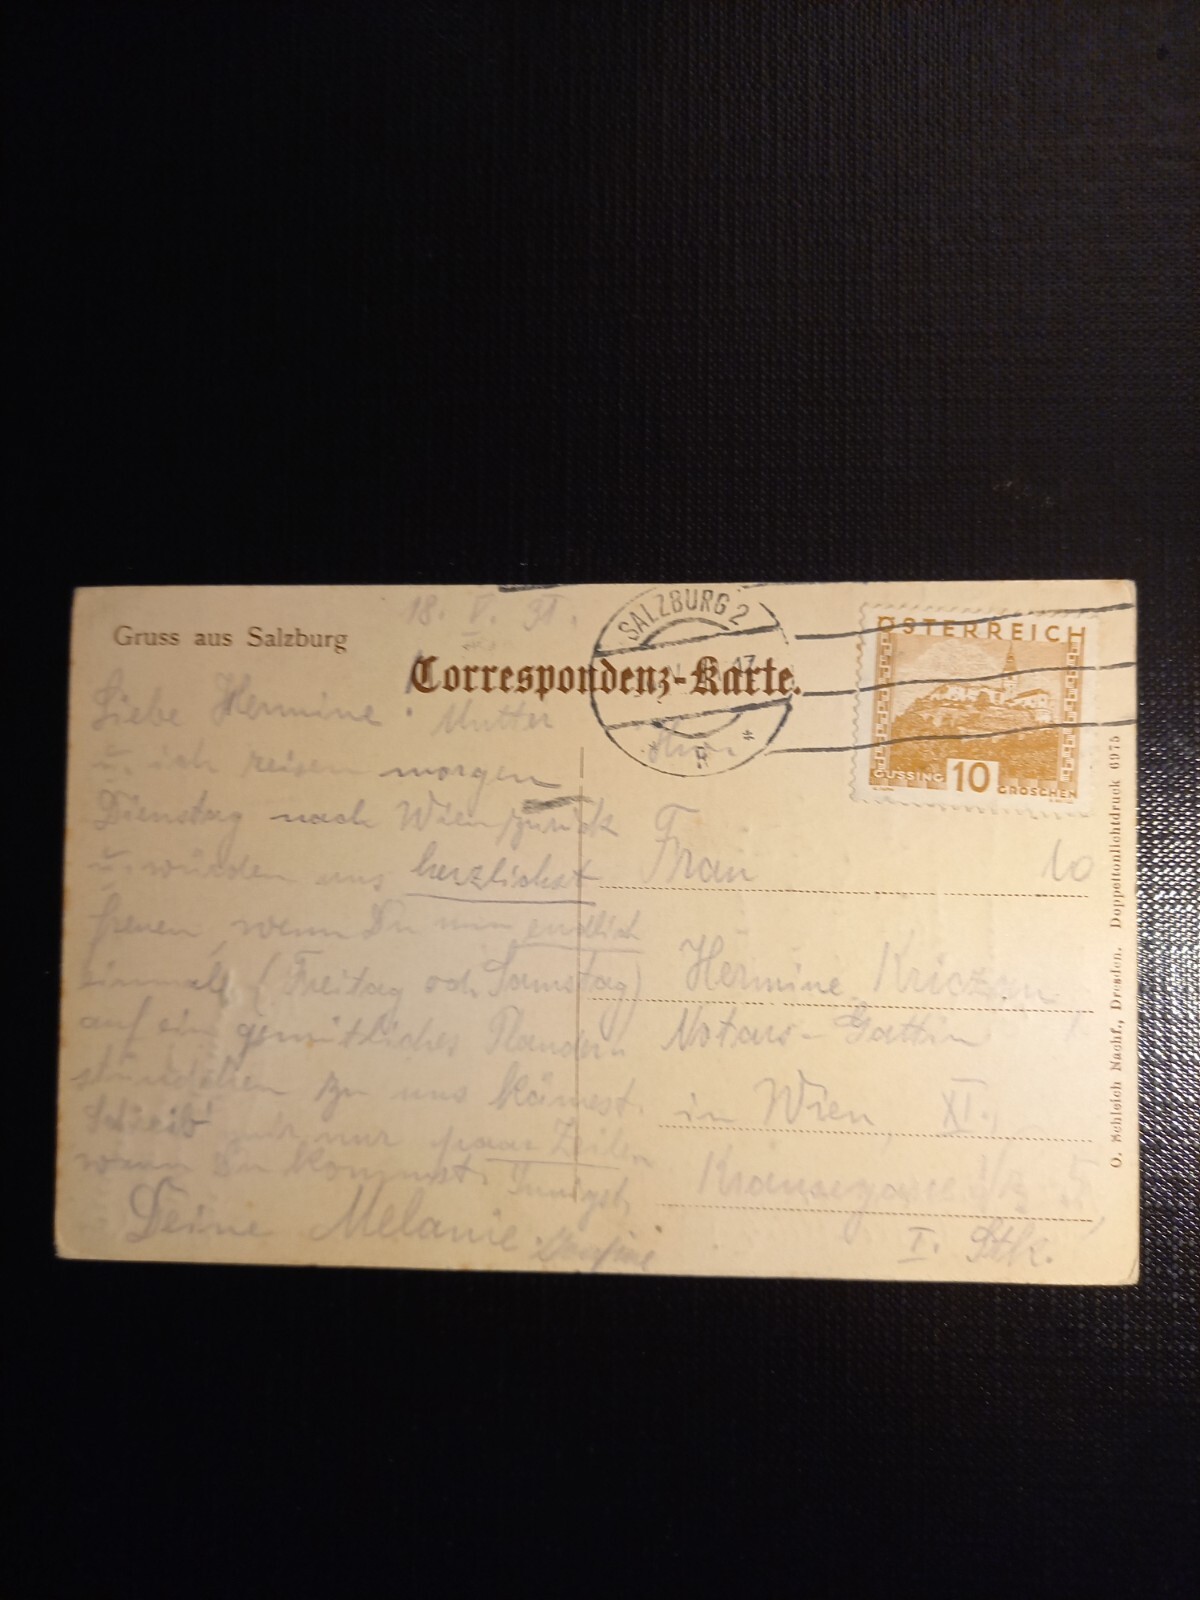 Gruss aus Salzburg
18. V. 31.
Correspondenz-Karte.
SALZBURG 2
ÖSTERREICH
GÜSSING 10 GROSCHEN
Liebe Hermine! Mutter
u. ich reisen morgen
Dienstag nach Wien zurück
u. würden uns herzlichst
freuen, wenn Du nun endlich
einmal (Freitag od. Samstag)
auf ein gemütliches Plauder-
stündchen zu uns kämest.
Schreib nur paar Zeilen
wann Du kommst. Innigst,
Deine Melanie
Frau
10
Hermine
Notars-Gattin
in Wien, XI.,
5,
I. Stk.
O. Schleich Nachf., Dresden. Doppeltonlichtdruck 6975